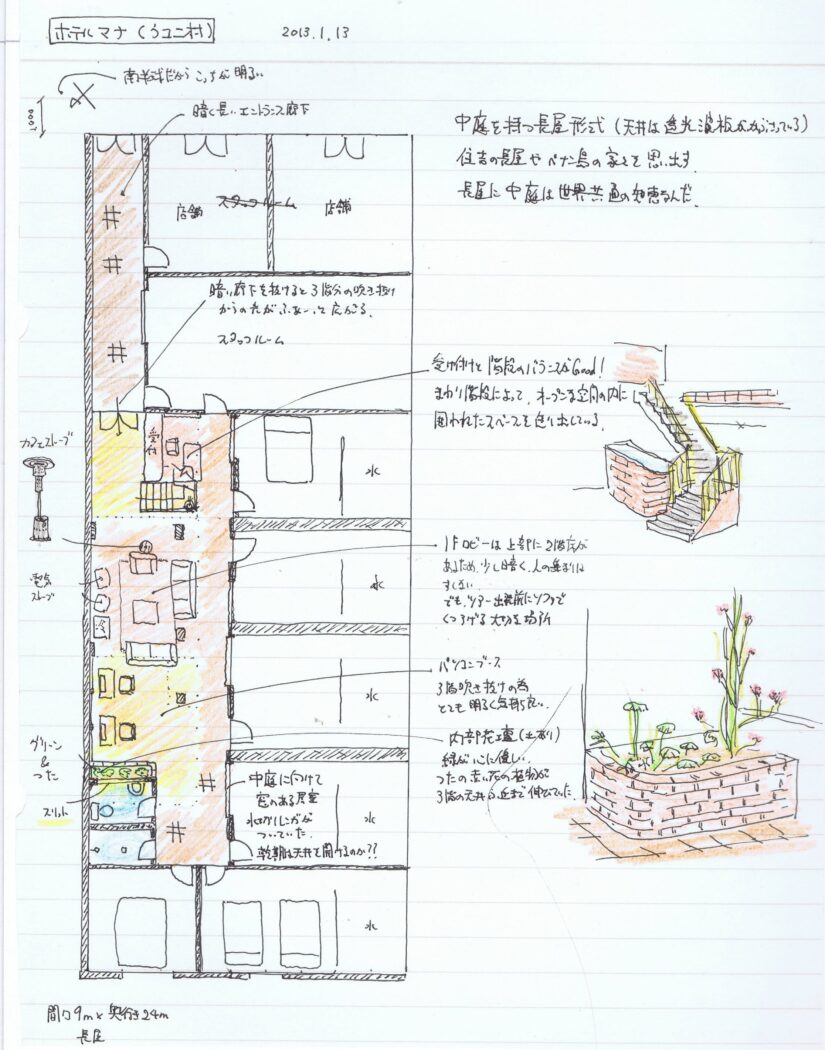 ホテルマナ(ウユニ村)
2013.1.13
南半球だからこっちが明るい
1000
暗く長いエントランス廊下
中庭を持つ長屋形式(天井は透光波板がかぶさっている)
住吉の長屋やペナン島の家々を思い出す.
長屋に中庭は世界共通の知恵なんだ.
店舗
スタッフルーム
店舗
暗い廊下を抜けると3階分の吹き抜け
からの光がふあーっと広がる.
スタッフルーム
受け付けと階段のバランスがGood!
まわり階段によって、オープンな空間の内に
囲われたスペースを造り出している.
受付
カフェストーブ
水
1Fロビーは上部に2階床が
あるため、少し暗く、人の集まりは
すくない
でも、ツアー出発前にソファで
くつろげる大切な場所
水
電気
ストーブ
パソコンブース
3階吹き抜けの為
とても明るく気持ち良い.
水
内部花壇(土あり)
緑がいこに優しい.
つたの赤い花の植物が
3階の天井付近まで伸びていた
グリーン
&
つた
スリット
中庭に向けて
窓のある居室
水切レンガが
ついていた.
乾期は天井を開けるのか??
水
水
間口9m×奥行き24m
長屋